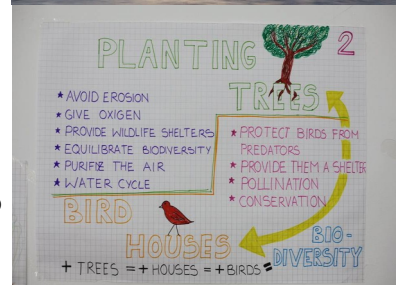 PLANTING
2
TREES
★ AVOID EROSION
★ GIVE OXIGEN
★ PROVIDE WILDLIFE SHELTERS
★ EQUILIBRATE BIODIVERSITY
★ PURIFIE THE AIR
★ WATER CYCLE
★ PROTECT BIRDS FROM
PREDATORS
★ PROVIDE THEM A SHELTER
★ POLLINATION
★ CONSERVATION
BIRD
HOUSES
BIO-
DIVERSITY
+ TREES = + HOUSES = + BIRDS =